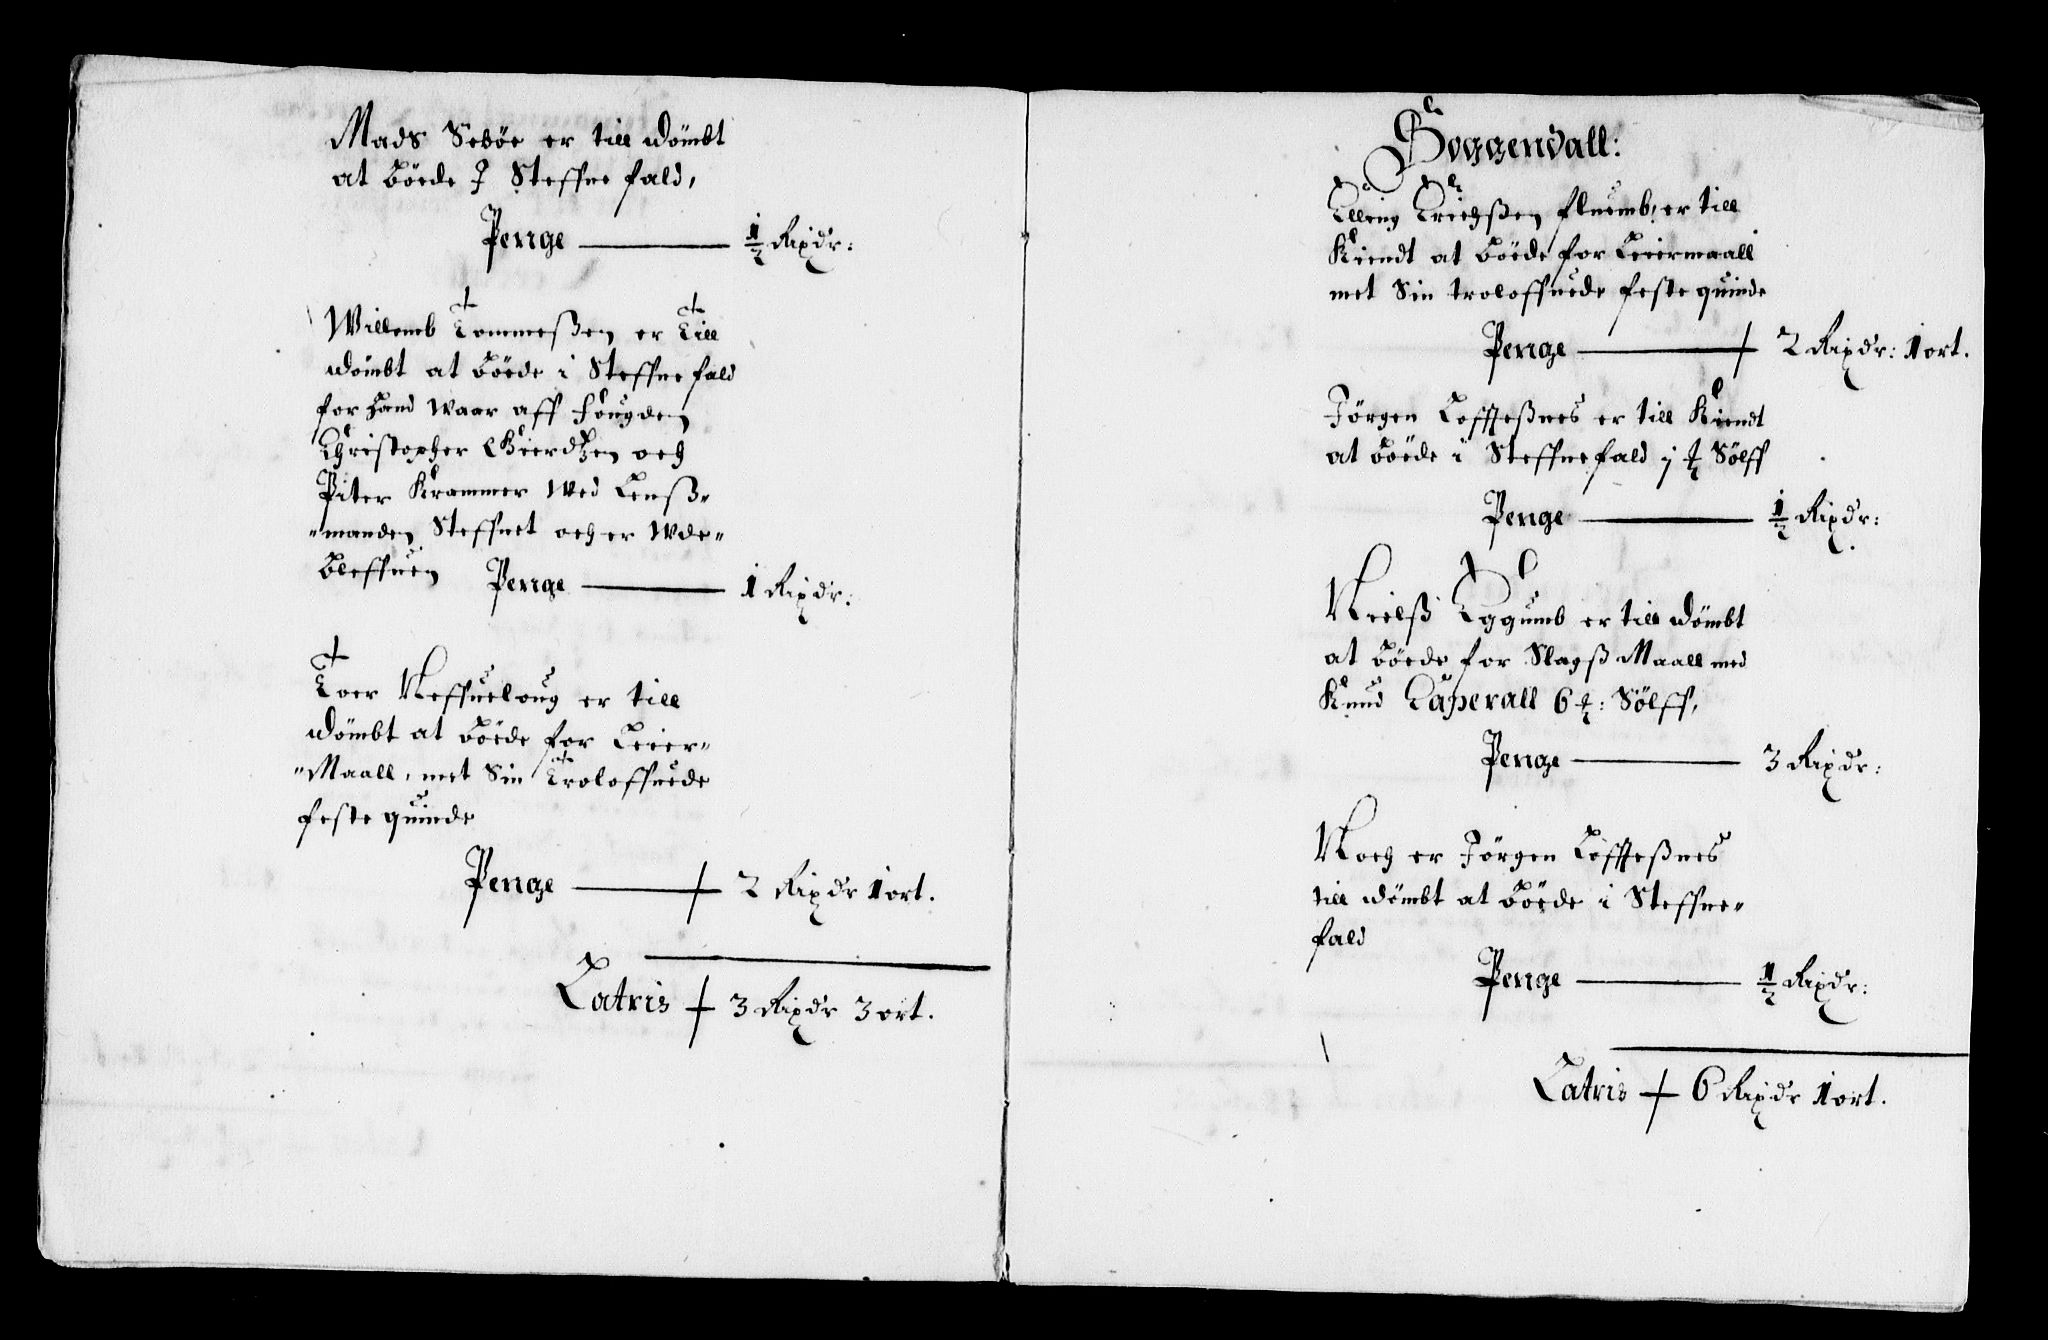 Mads Sebøe er till dömbt
at böede J Steffne fald,
Penge ½ Rixdr:
Willemb Tommeßen er Till
dömbt at böede i Steffne fald
for hand waar aff fougden
Christopher Gierdtzen och
Piter Krammer wed Lenß-
-manden Steffnet och er wde-
bleffuen Penge 1 Rixdr:
Toer Neffueloug er till
dömbt at böede for Leier-
-Maall, met Sin Troloffuede
feste quinde
Penge 2 Rixdr 1 ort.
Latris 3 Rixdr 3 ort.
Soggendall:
Elling Erichßen fluemb, er till
Kiendt at böede for Leiermaall
met Sin troloffuede feste quinde
Penge 2 Rixdr: 1 ort.
Jörgen Loffteßnes er till Kiendt
at böede i Steffne fald Sölff
Penge ½ Rixdr:
Nielß Eggumb er till dömbt
at böede for Slagß Maall med
Knud Laperall 6 Sölff,
Penge 3 Rixdr:
Noch er Jörgen Löffteßnes
till dömbt at böede i Steffne-
fald
Penge ½ Rixdr:
Latris 6 Rixdr 1 ort.